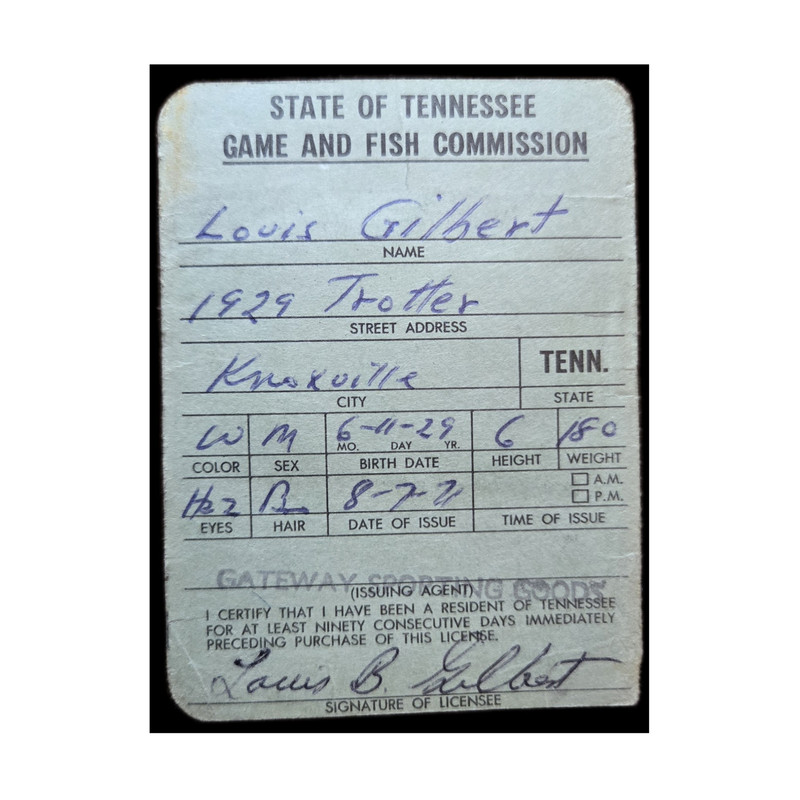 STATE OF TENNESSEE
GAME AND FISH COMMISSION
Louis Gilbert
NAME
1929 Trotter
STREET ADDRESS
Knoxville TENN.
CITY STATE
W M 6-11-29 6 180
MO. DAY YR.
COLOR SEX BIRTH DATE HEIGHT WEIGHT
Haz Bn 8-7-71 A.M.
P.M.
EYES HAIR DATE OF ISSUE TIME OF ISSUE
GATEWAY SPORTING GOODS
(ISSUING AGENT)
I CERTIFY THAT I HAVE BEEN A RESIDENT OF TENNESSEE
FOR AT LEAST NINETY CONSECUTIVE DAYS IMMEDIATELY
PRECEDING PURCHASE OF THIS LICENSE.
Louis B. Gilbert
SIGNATURE OF LICENSEE